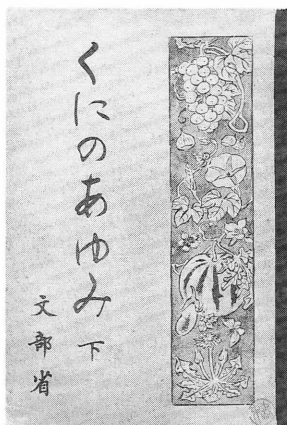 くにのあゆみ 下
文部省